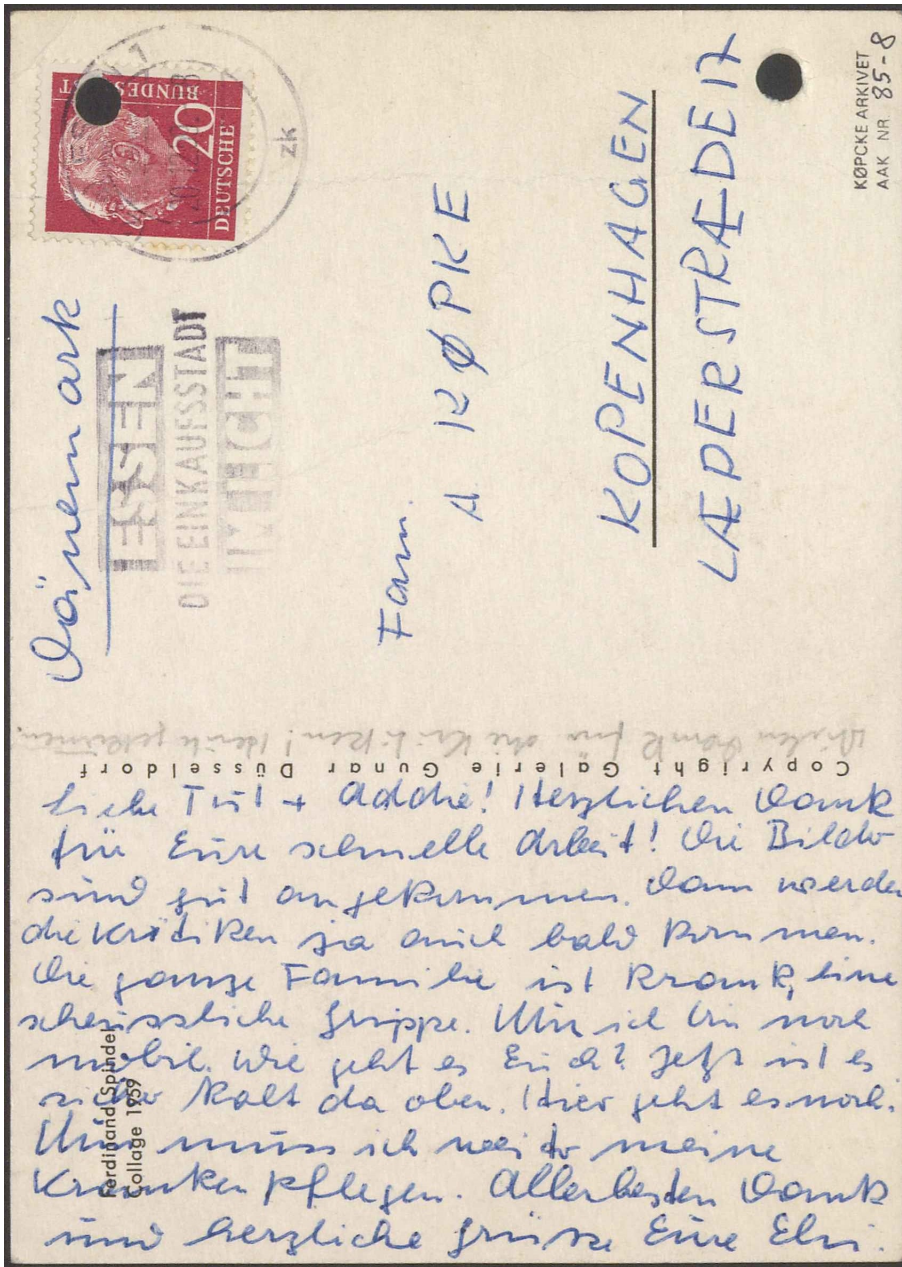 DEUTSCHE
BUNDESPOST
20
zk
Dänemark
ESSEN
DIE EINKAUFSSTADT
Fam.
A KØPKE
KOPENHAGEN
LÆDERSTRÆDE 17
KØPCKE ARKIVET
AAK NR. 85-8
Vielen Dank für die Kritiken! Heute gekommen.
Copyright Galerie Gunar Düsseldorf
Liebe Tut + Addie! Herzlichen Dank
für Eure schnelle Arbeit! Die Bilder
sind gut angekommen. Dann werden
die Kritiken ja auch bald kommen.
Die ganze Familie ist krank, eine
scheussliche Grippe. Nur ich bin noch
mobil. Wie geht es Euch? Jetzt ist es
sicher kalt da oben. Hier geht es noch.
Nun muss ich weiter meine
Kranken pflegen. Allerbesten Dank
und herzliche Grüsse Eure
Ferdinand Spindel
Collage 1959